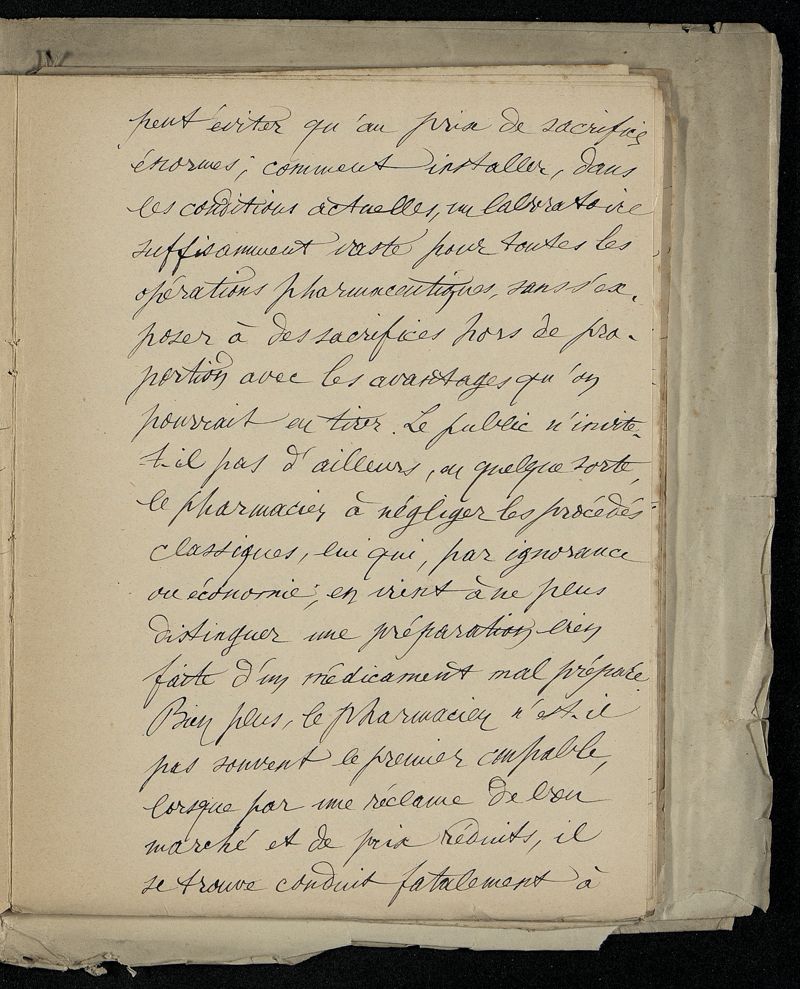 IV
peut éviter qu'au prix de sacrifices
énormes; comment installer, dans
les conditions actuelles, un laboratoire
suffisamment vaste pour toutes les
opérations pharmaceutiques, sans s'ex-
poser à des sacrifices hors de pro-
portion avec les avantages qu'on
pourrait en tirer. Le public n'invite-
t-il pas d'ailleurs, en quelque sorte,
le pharmacien à négliger les procédés
classiques, lui qui, par ignorance
ou économie, en vient à ne plus
distinguer une préparation bien
faite d'un médicament mal préparé.
Bien plus, le pharmacien n'est-il
pas souvent le premier coupable,
lorsque par une réclame de bon
marché et de prix réduits, il
se trouve conduit fatalement à